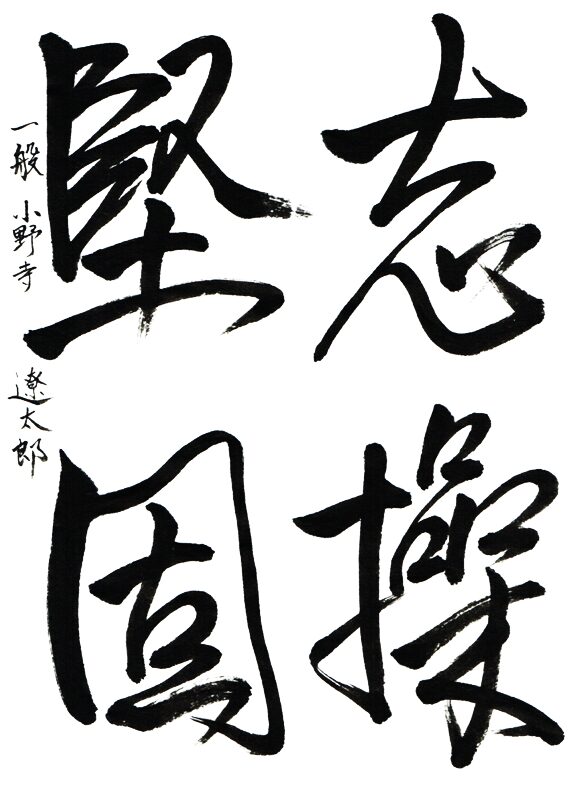 志操
堅固
一般 小野寺 遼太郎